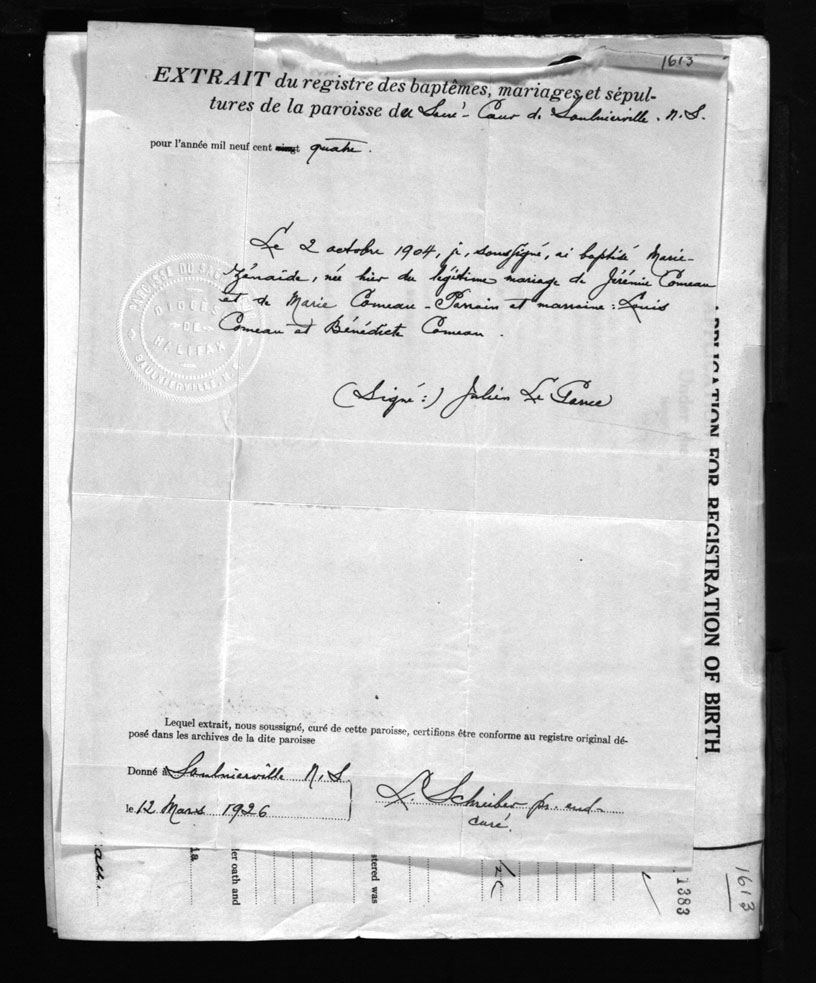 1613
EXTRAIT du registre des baptêmes, mariages et sépul-
tures de la paroisse du Sacré-Coeur de Saulnierville. N.S.
pour l'année mil neuf cent vingt quatre.
Le 2 octobre 1904, je, soussigné, ai baptisé Marie-
Zénaïde, née hier du légitime mariage de Jérémie Comeau
et de Marie Comeau - Parrain et marraine: Louis
Comeau et Bénédicte Comeau.
(Signé:) Julien Le
PAROISSE DU
DIOCESE
DE
HALIFAX
SAULNIERVILLE, N.S.
APPLICATION FOR REGISTRATION OF BIRTH
Lequel extrait, nous soussigné, curé de cette paroisse, certifions être conforme au registre original dé-
posé dans les archives de la dite paroisse
Donné à Saulnierville N.S.
le 12 Mars 1926
L. Schreiber pr. eud.
curé.
oath and
stered was
1383
1613